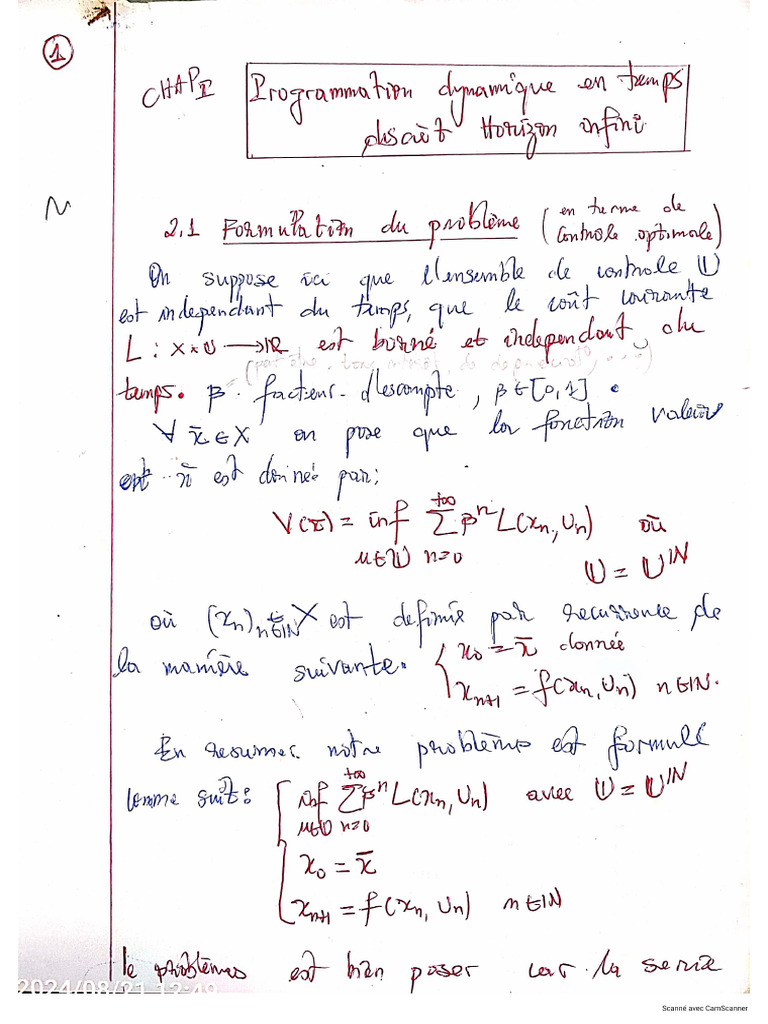 1
CHAP II Programmation dynamique en temps
discret Horizon infini
2.1 Formulation du problème (en terme de
controle optimale)
On suppose ici que l'ensemble de controle U
est independant du temps, que le coût courante
L : X x U → IR est borné et independant du
temps. β facteur d'escompte, β ∈ [0,1] .
∀ x̄ ∈ X on pose que la fonction valeur
opt x̄ est donnée par:
V(x̄) = inf_{u∈𝕌} ∑_{n=0}^{+∞} β^n L(x_n, U_n) où
𝕌 = U^IN
où (x_n)_{n∈IN} ∈ X est definie par recurrence de
la manière suivante. { x_0 = x̄ donnée
x_{n+1} = f(x_n, U_n) n∈IN.
En resumer notre problème est formulé
comme suit: { inf_{u∈𝕌} ∑_{n=0}^{+∞} β^n L(x_n, U_n) avec 𝕌 = U^IN
x_0 = x̄
x_{n+1} = f(x_n, U_n) n∈IN
le problèmes est bien poser car la serie
2024/08/21 12:49
Scanné avec CamScanner